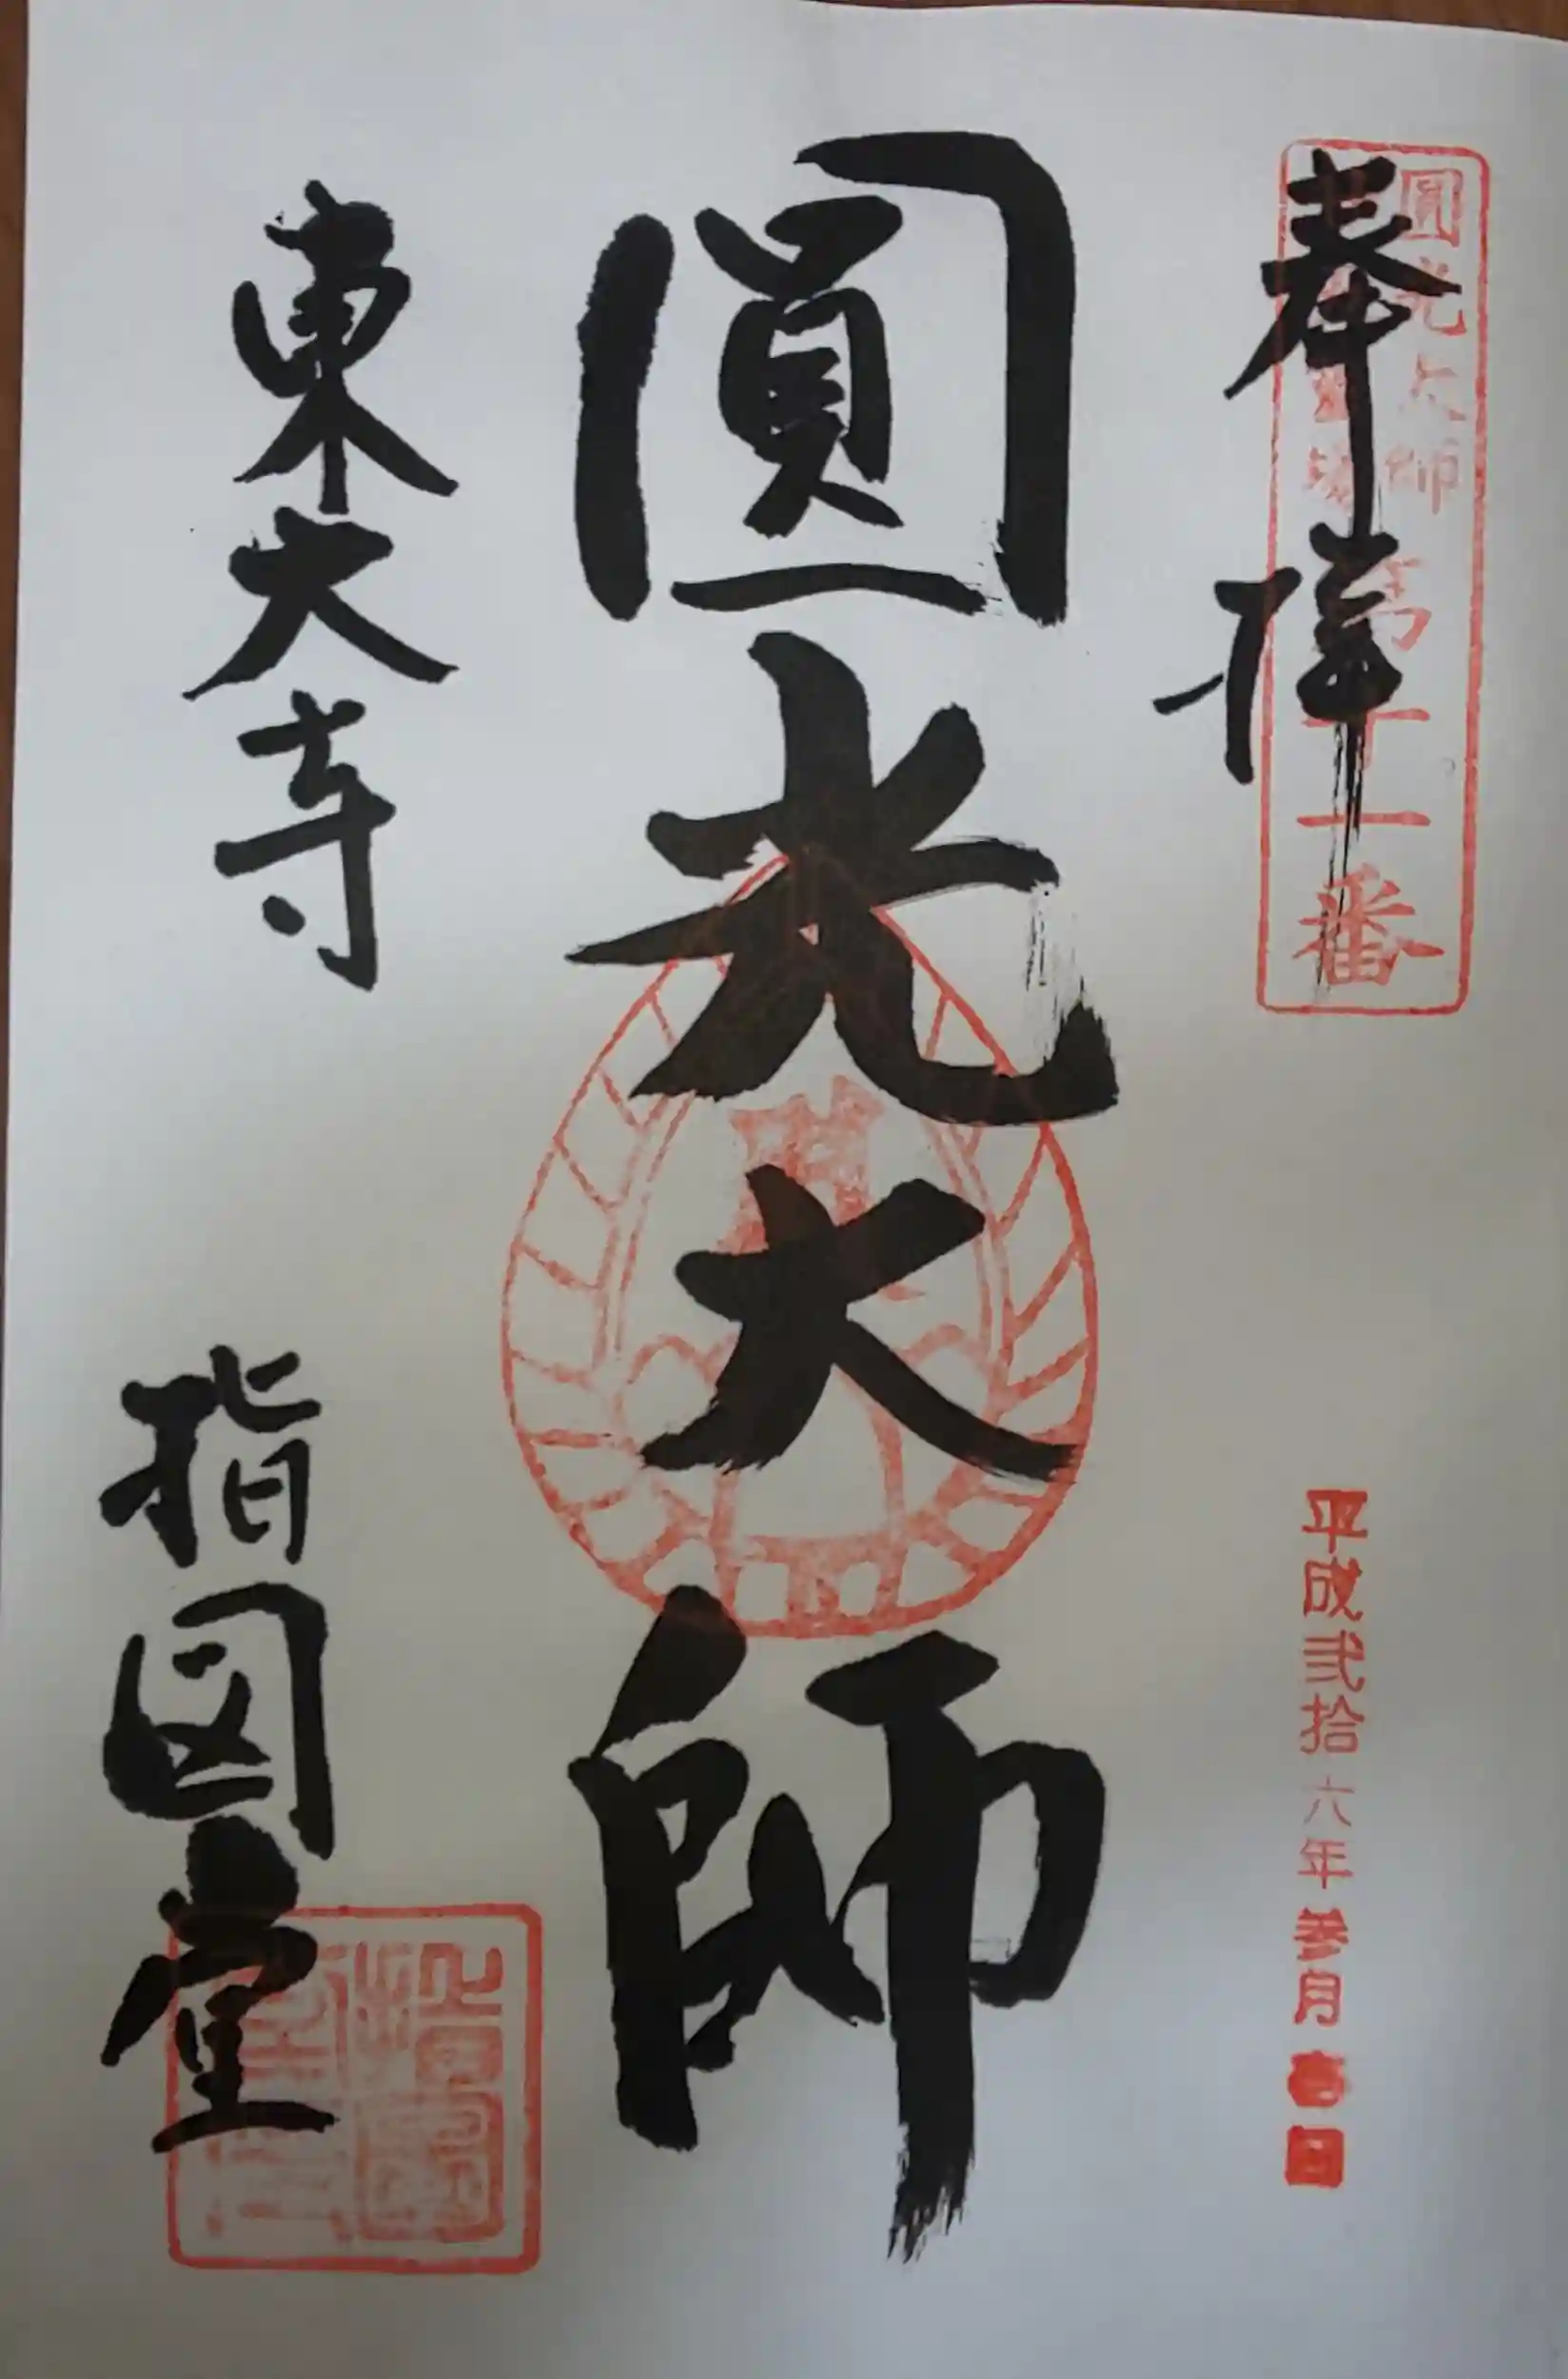 奉拝
圓光大師
霊場
第十一番
平成弐拾六年参月壱日
圓光大師
東大寺
指図堂